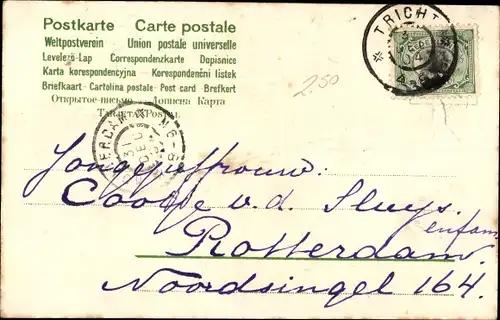 Postkarte Carte postale
Weltpostverein Union postale universelle
Levelező-Lap Correspondenzkarte Dopisnice
Karta korespondencyjna Korespondenční listek
Briefkaart Cartolina postale Post card Brefkort
Открытое письмо Дописна Карта
Tarjeta Postal
TRICHT
250
ERDAM
31
DEC
Jongejuffrouw:
Cootje v.d. Sluys.
enfam
Rotterdam.
Noordsingel 164.